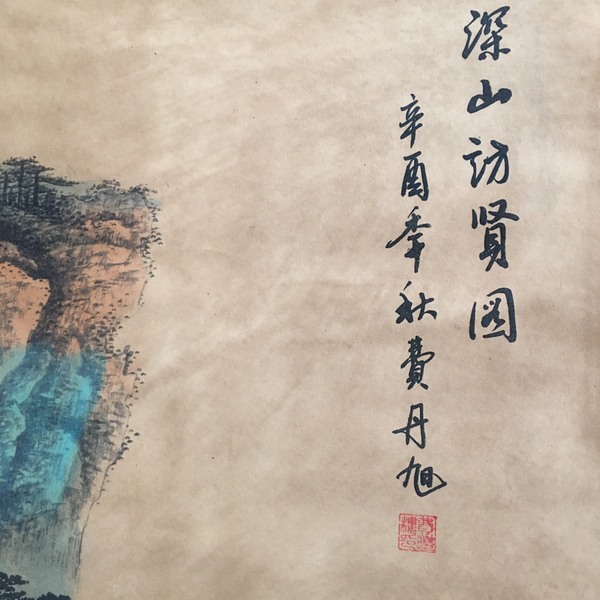 深山訪賢图
辛酉年秋費丹旭